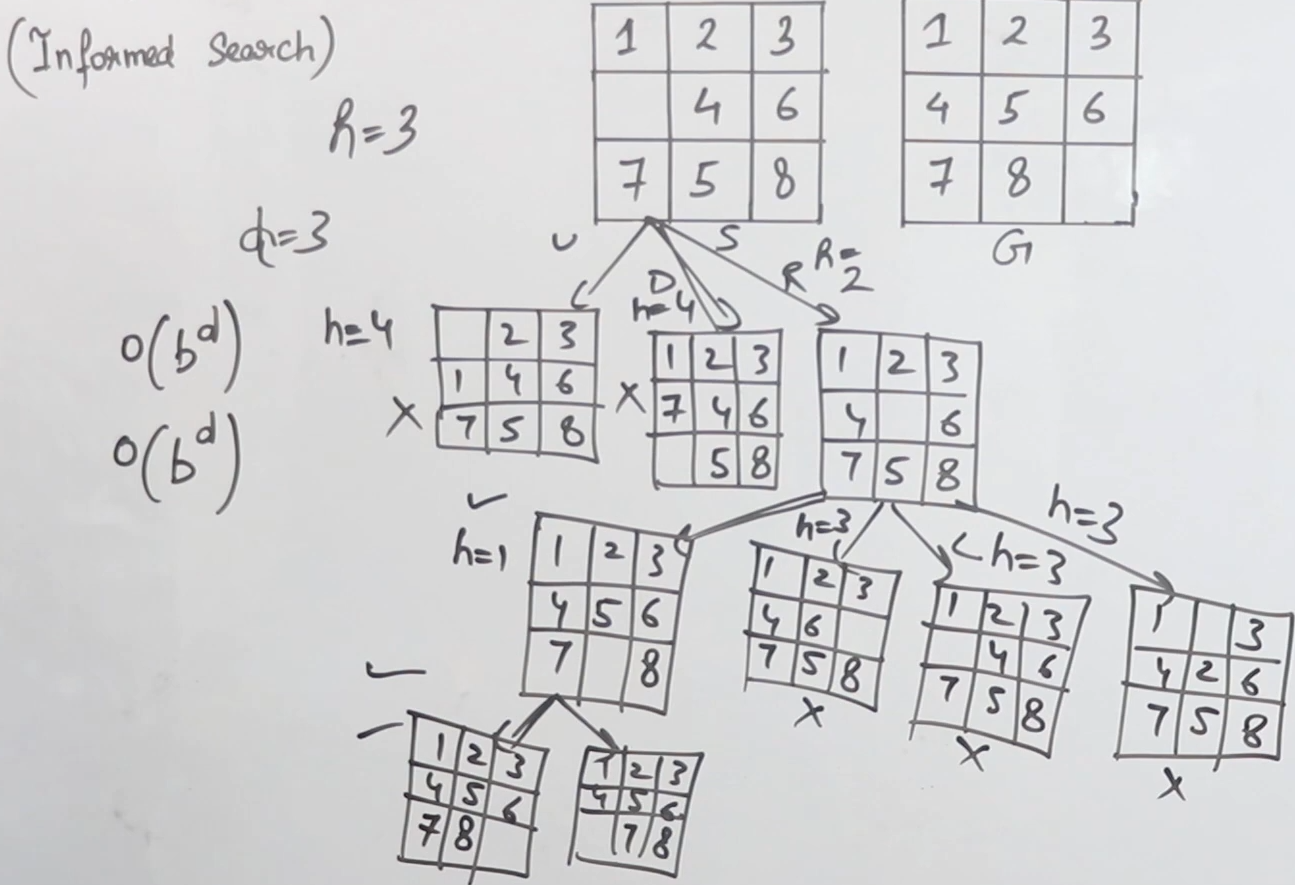 (Informed Search)
h=3
d=3
O(b^d)
O(b^d)
1 2 3
4 6
7 5 8
S
1 2 3
4 5 6
7 8
G
U
D
h=4
R h=2
h=4
2 3
1 4 6
7 5 8
X
1 2 3
7 4 6
5 8
X
1 2 3
4 6
7 5 8
✓
h=1
1 2 3
4 5 6
7 8
h=3
1 2 3
4 6
7 5 8
X
h=3
1 2 3
4 6
7 5 8
X
h=3
1 3
4 2 6
7 5 8
X
1 2 3
4 5 6
7 8
1 2 3
4 5 6
7 8